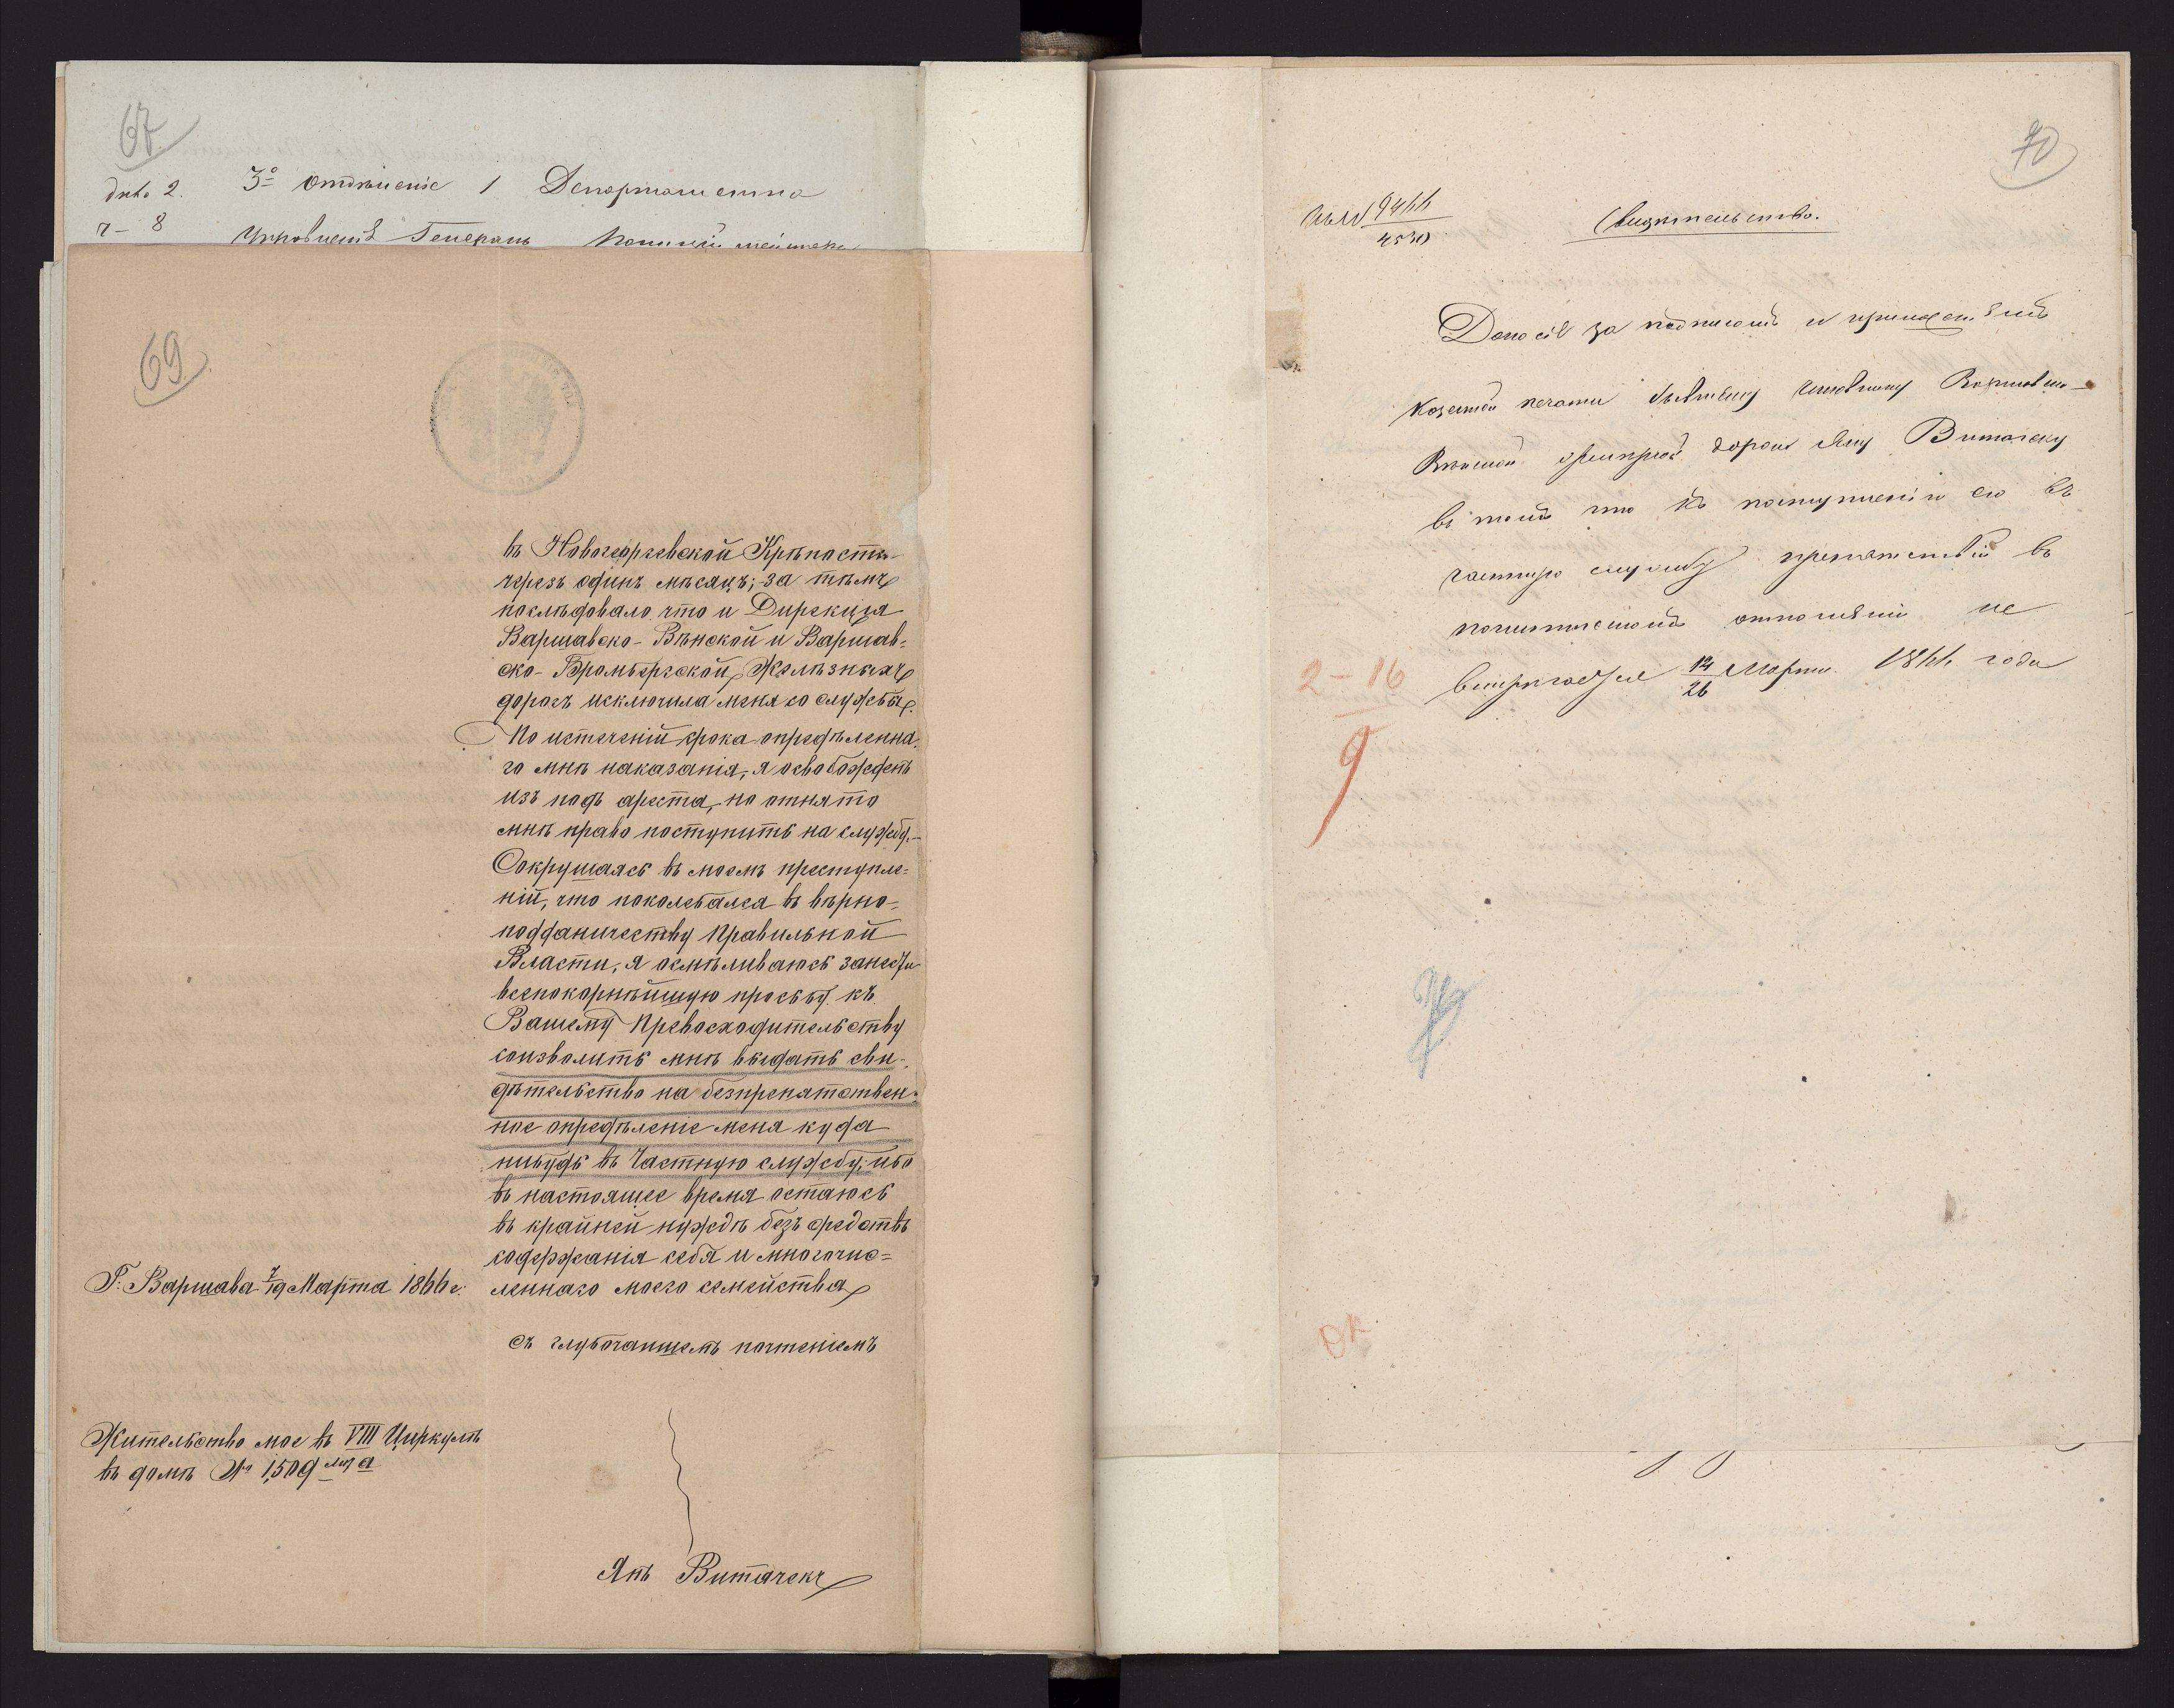 67.
3е отдѣленіе 1 Департамента
2.
8
Генералъ Полиціймейстера
69.
въ Новогеоргевской Крѣпости
черезъ одинъ мѣсяцъ; за тѣмъ
послѣдовало что и Дирекція
Варшавско-Вѣнской и Варшав-
ско-Бромбергской Желѣзныхъ
дорогъ исключила меня со службы.
По истеченіи срока опредѣленна-
го мнѣ наказанія, я освобожденъ
изъ подъ ареста, но отнято
мнѣ право поступить на службу.-
Сокрушаясь въ моемъ преступле-
ніи, что поколебался въ вѣрно-
подданичеству правильной
Власти, я осмѣливаюсь занести
всепокорнѣйшую просьбу къ
Вашему Превосходительству
соизволить мнѣ выдать сви-
дѣтельство на безпрепятствен-
ное опредѣленіе меня куда
нибудь въ Частную службу; ибо
въ настоящее время остаюсь
въ крайней нуждѣ безъ средствъ
содержанія себя и многочис-
леннаго моего семейства
Г. Варшава 7/19 Марта 1866 г.
съ глубочаншемъ почтеніемъ
Жительство мое въ VIII Циркулѣ
въ домѣ № 1,509 а
Янъ Витачекъ
70
9466
4530
Свидѣтельство.
Дано сіе за подписомъ и приложеніемъ
Козенной печати бывшему Чиновнику Варшавско-
Вѣнской желѣзной дороги Яну Витачеку
въ томъ что къ поступленію его въ
частную службу препятствій въ
политическомъ отношеніи не
встрѣчается 14/26 Марта 1866 года
2-16
9